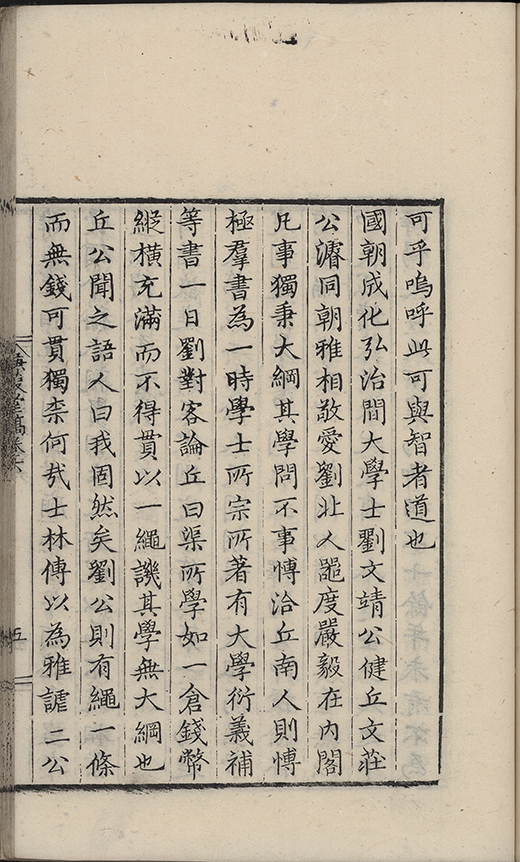 可乎嗚呼此可與智者道也
國朝成化弘治間大學士劉文靖公健丘文莊
公濬同朝雅相敬愛劉北人噐度嚴毅在内閣
凡事獨秉大綱其學問不事愽洽丘南人則愽
極羣書為一時學士所宗所著有大學衍義補
等書一日劉對客論丘曰渠所學如一倉錢幣
縱橫充滿而不得貫以一繩譏其學無大綱也
丘公聞之語人曰我固然矣劉公則有繩一條
而無錢可貫獨柰何㢤士林傳以為雅謔二公
卷六
五